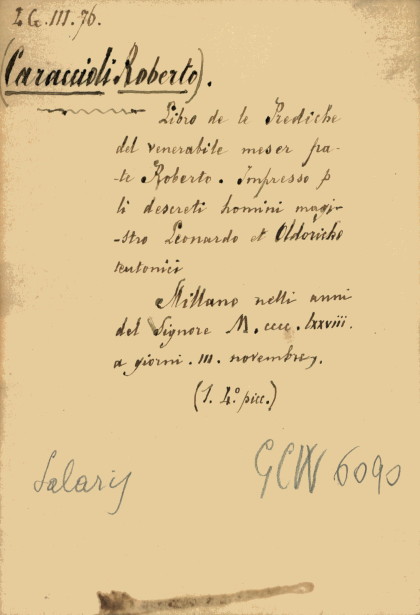 LC.III.76.
(Caraccioli Roberto).
Libro de le Prediche
del venerabile meser pa-
-te Roberto. Impresso p
li descreti homini magi-
-stro Leonardo et Oldoricho
teutonici
Millano nelli anni
del Signore M.cccc.lxxviii.
a giorni .III. novembre,.
(1. 4.° picc.)
Salaris
GCW 6090